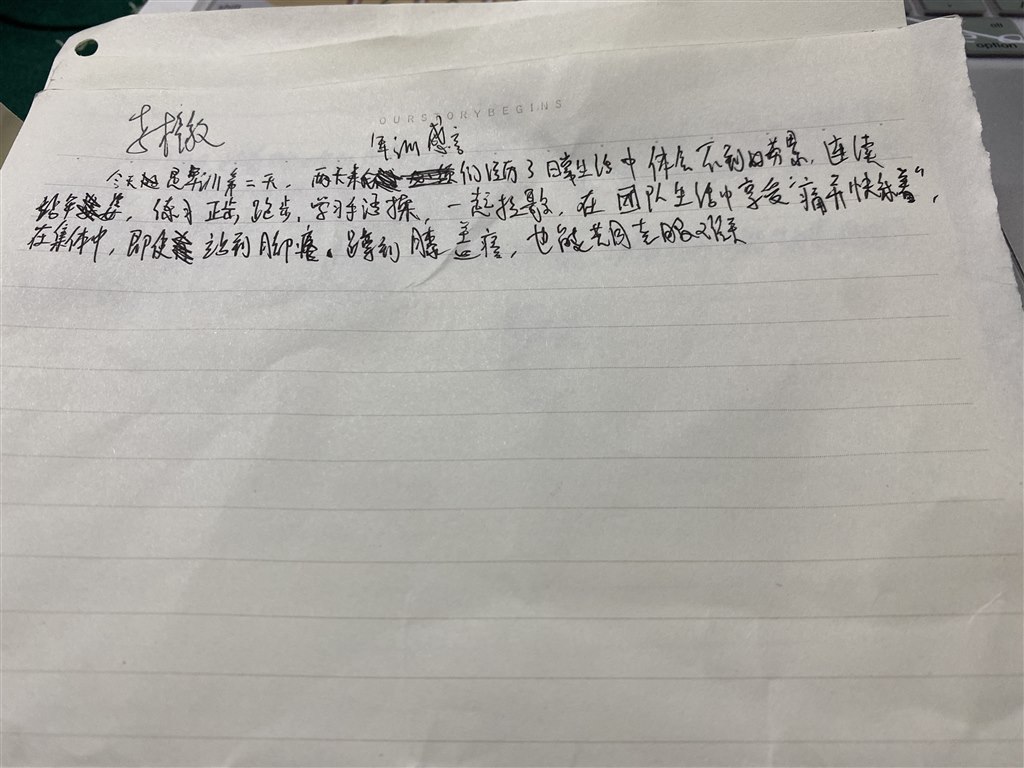 OURSTORYBEGINS
option
军训感言
今天是军训第二天，两天来们经历了日常生活中体会不到的劳累，连续
站军姿，练习正步，跑步，学习手语操，一起报数，在团队生活中享受"痛并快乐着"，
在集体中，即使站到脚疼，蹲到膝盖疼，也能共同克服艰难